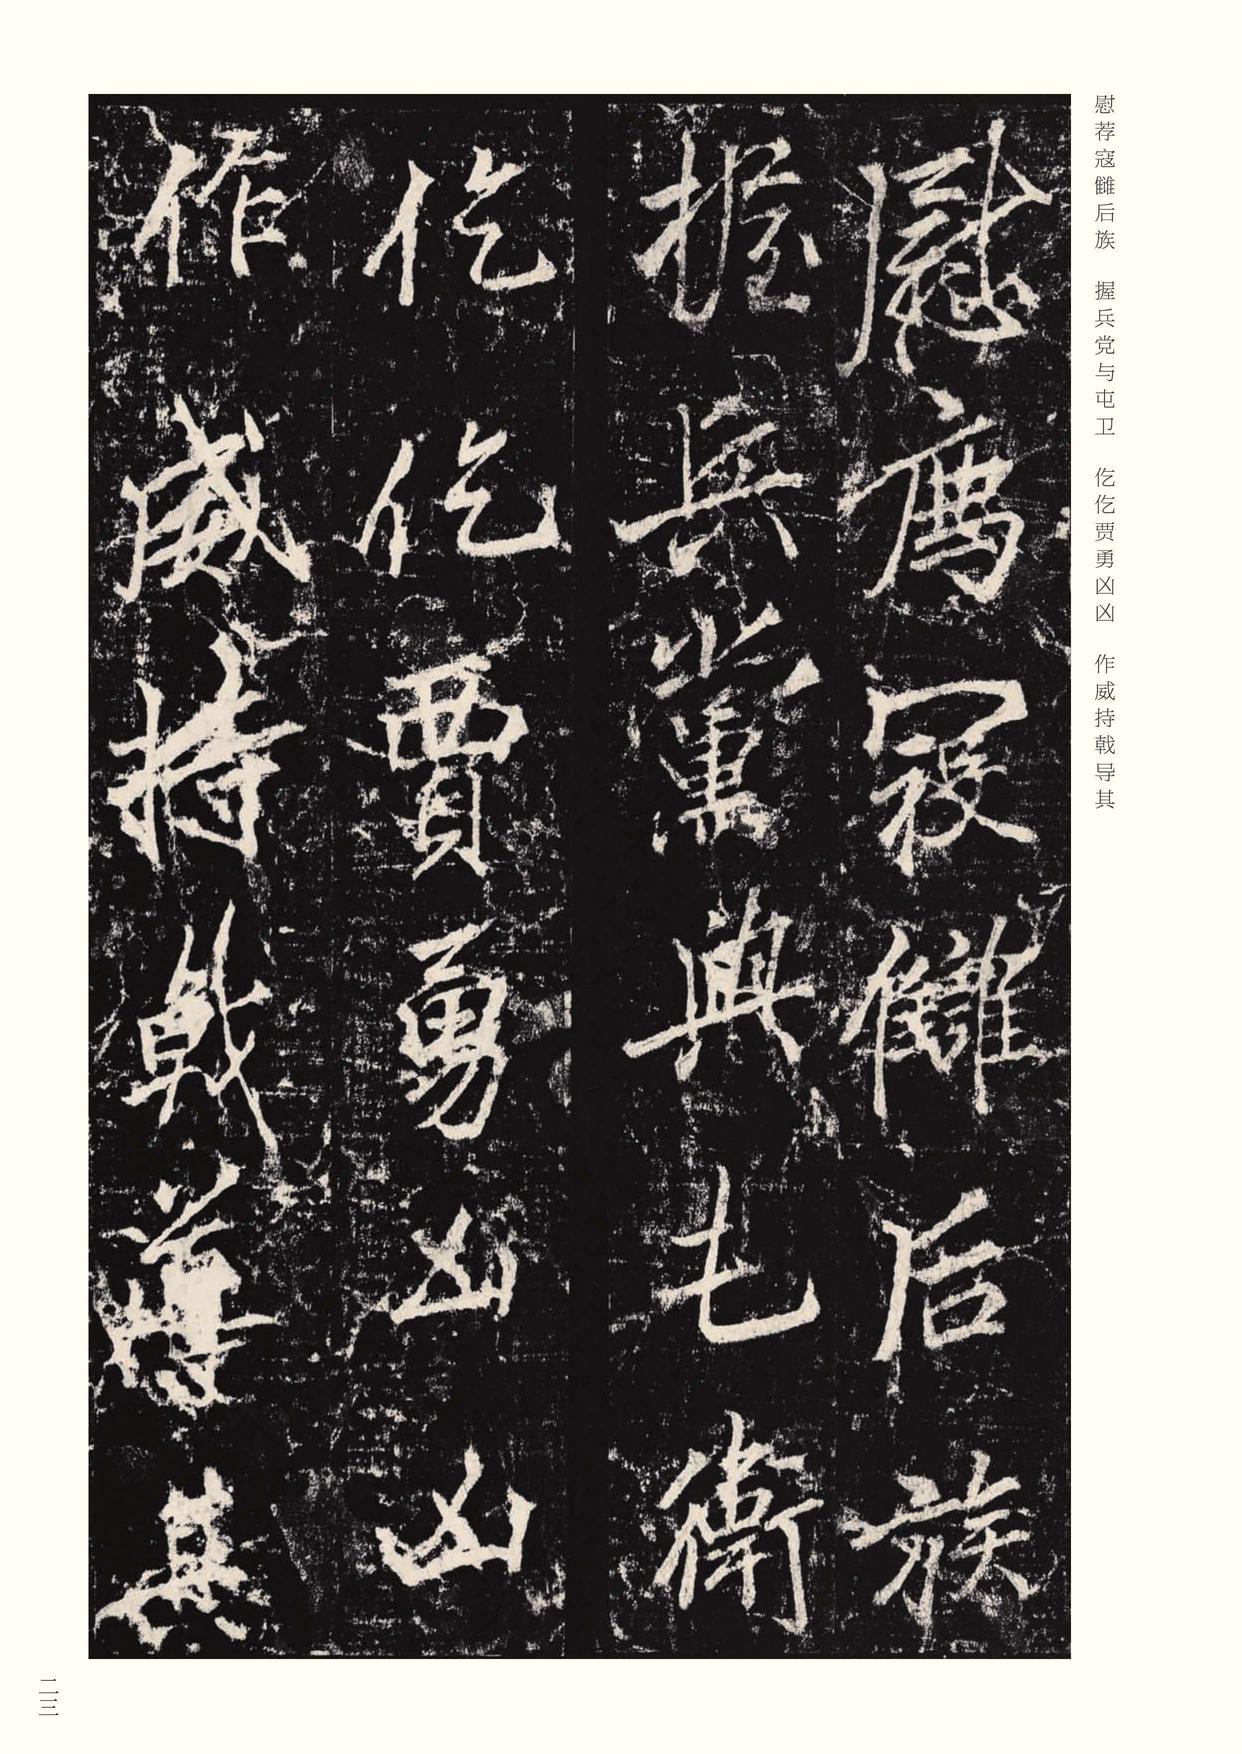 慰荐寇雠后族　握兵党与屯卫　仡仡贾勇凶凶　作威持戟导其
慰薦寇讎后族
握兵黨與屯衛
仡仡賈勇凶凶
作威持戟導其
二三